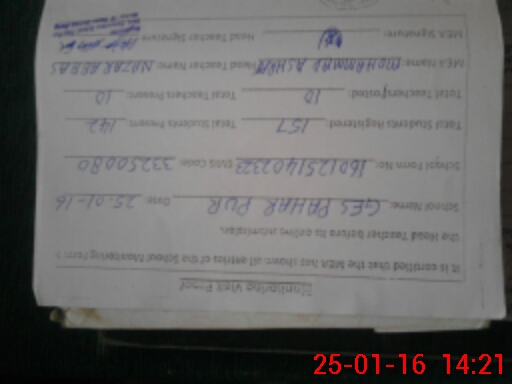 Monitoring Visit Proof
It is certified that the MEA has shown all entries of the School Monitoring Form to
the Head Teacher before its online submission.
School Name: GES PAHAR PUR Date: 25-01-16
School Form No: 1601251402323 EMIS Code: 33250080
Total Students Registered: 157 Total Students Present: 142
Total Teachers Posted: 10 Total Teachers Present: 10
MEA Name: MOHAMMAD ASHRAF Head Teacher Name: NAZAR ABBAS
MEA Signature: Head Teacher Signature
25-01-16 14:21